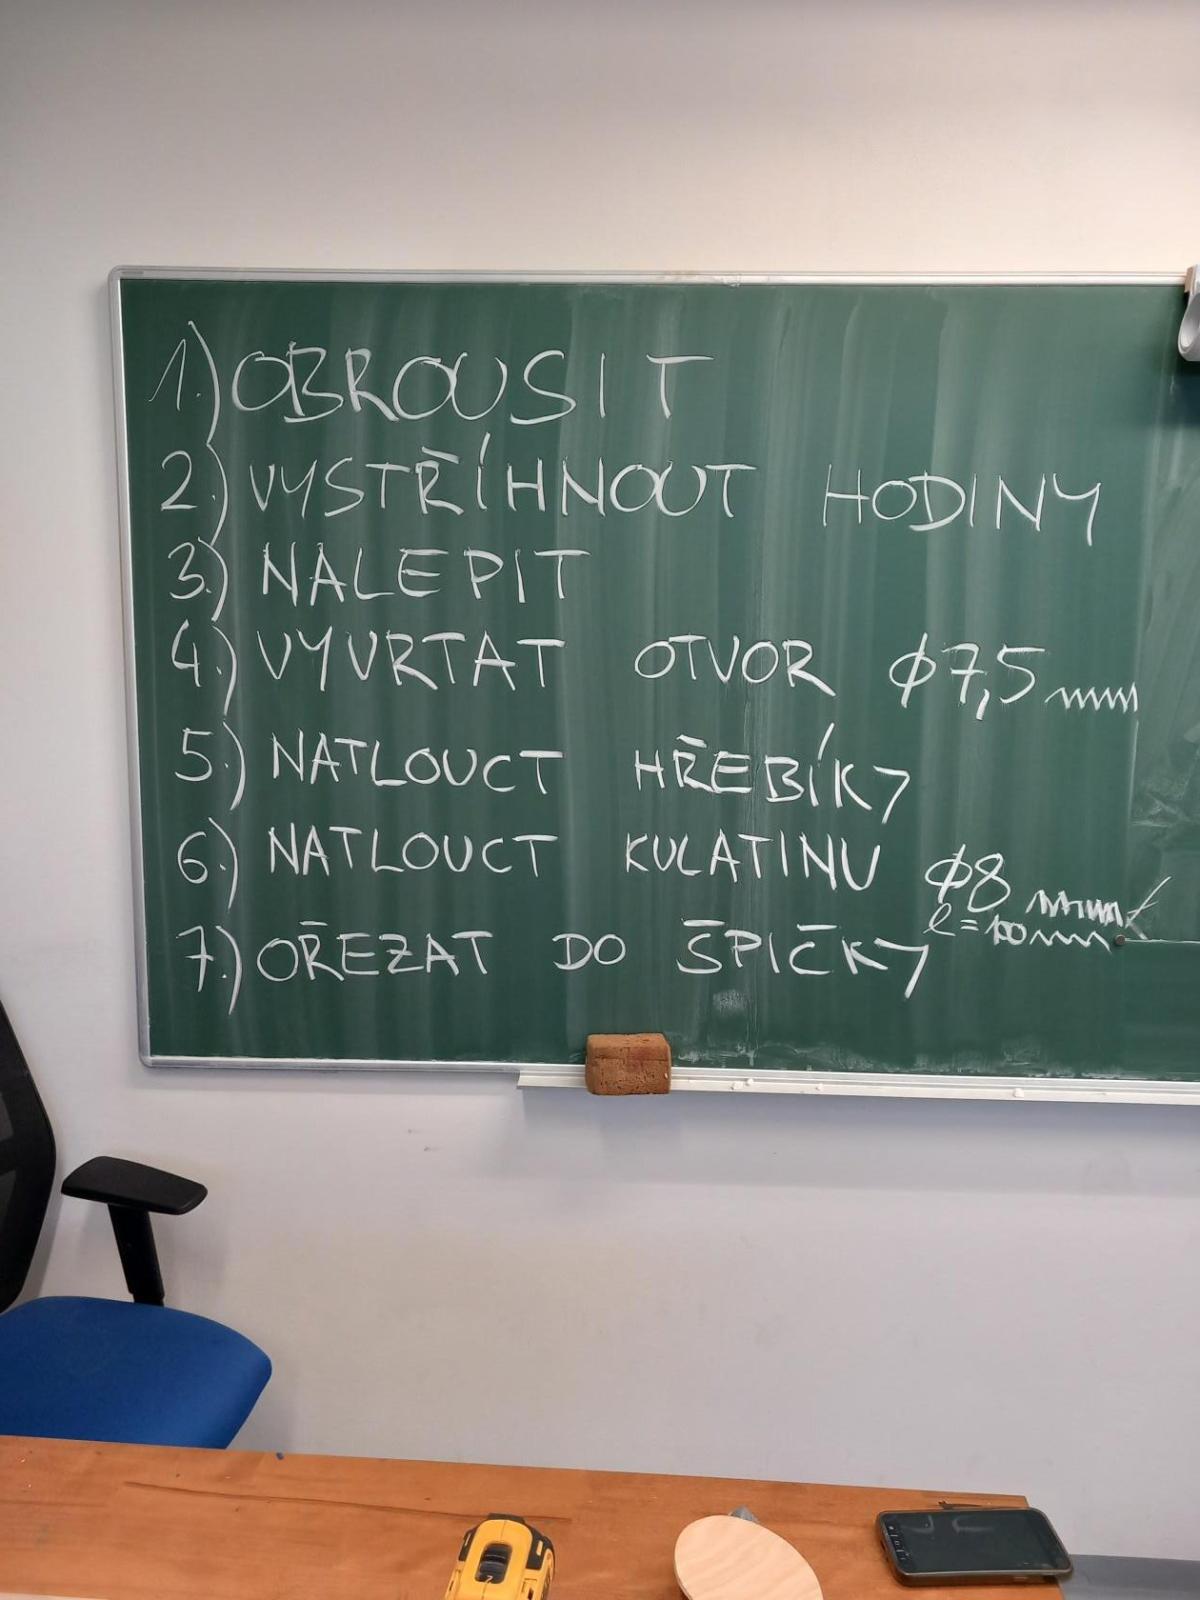 1.) OBROUSIT
2.) VYSTŘÍHNOUT HODINY
3.) NALEPIT
4.) VYVRTAT OTVOR ϕ7,5mm
5.) NATLOUCT HŘEBÍKY
6.) NATLOUCT KULATINU ϕ8 mm
l=100mm
7.) OŘEZAT DO ŠPIČKY